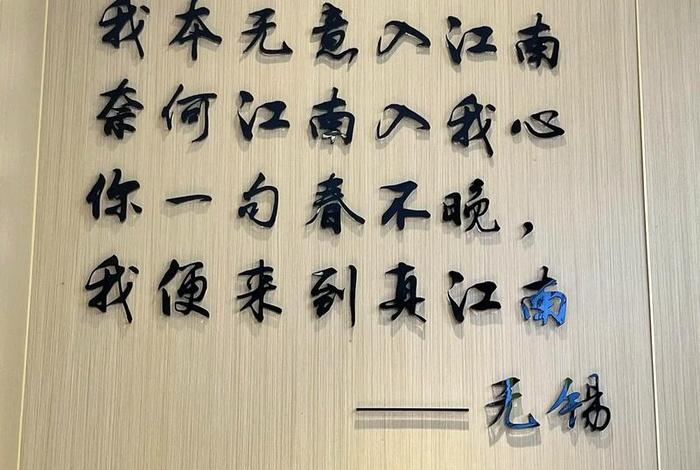 我本无意入江南
奈何江南入我心
你一句春不晚，
我便来到真江南
——无锡